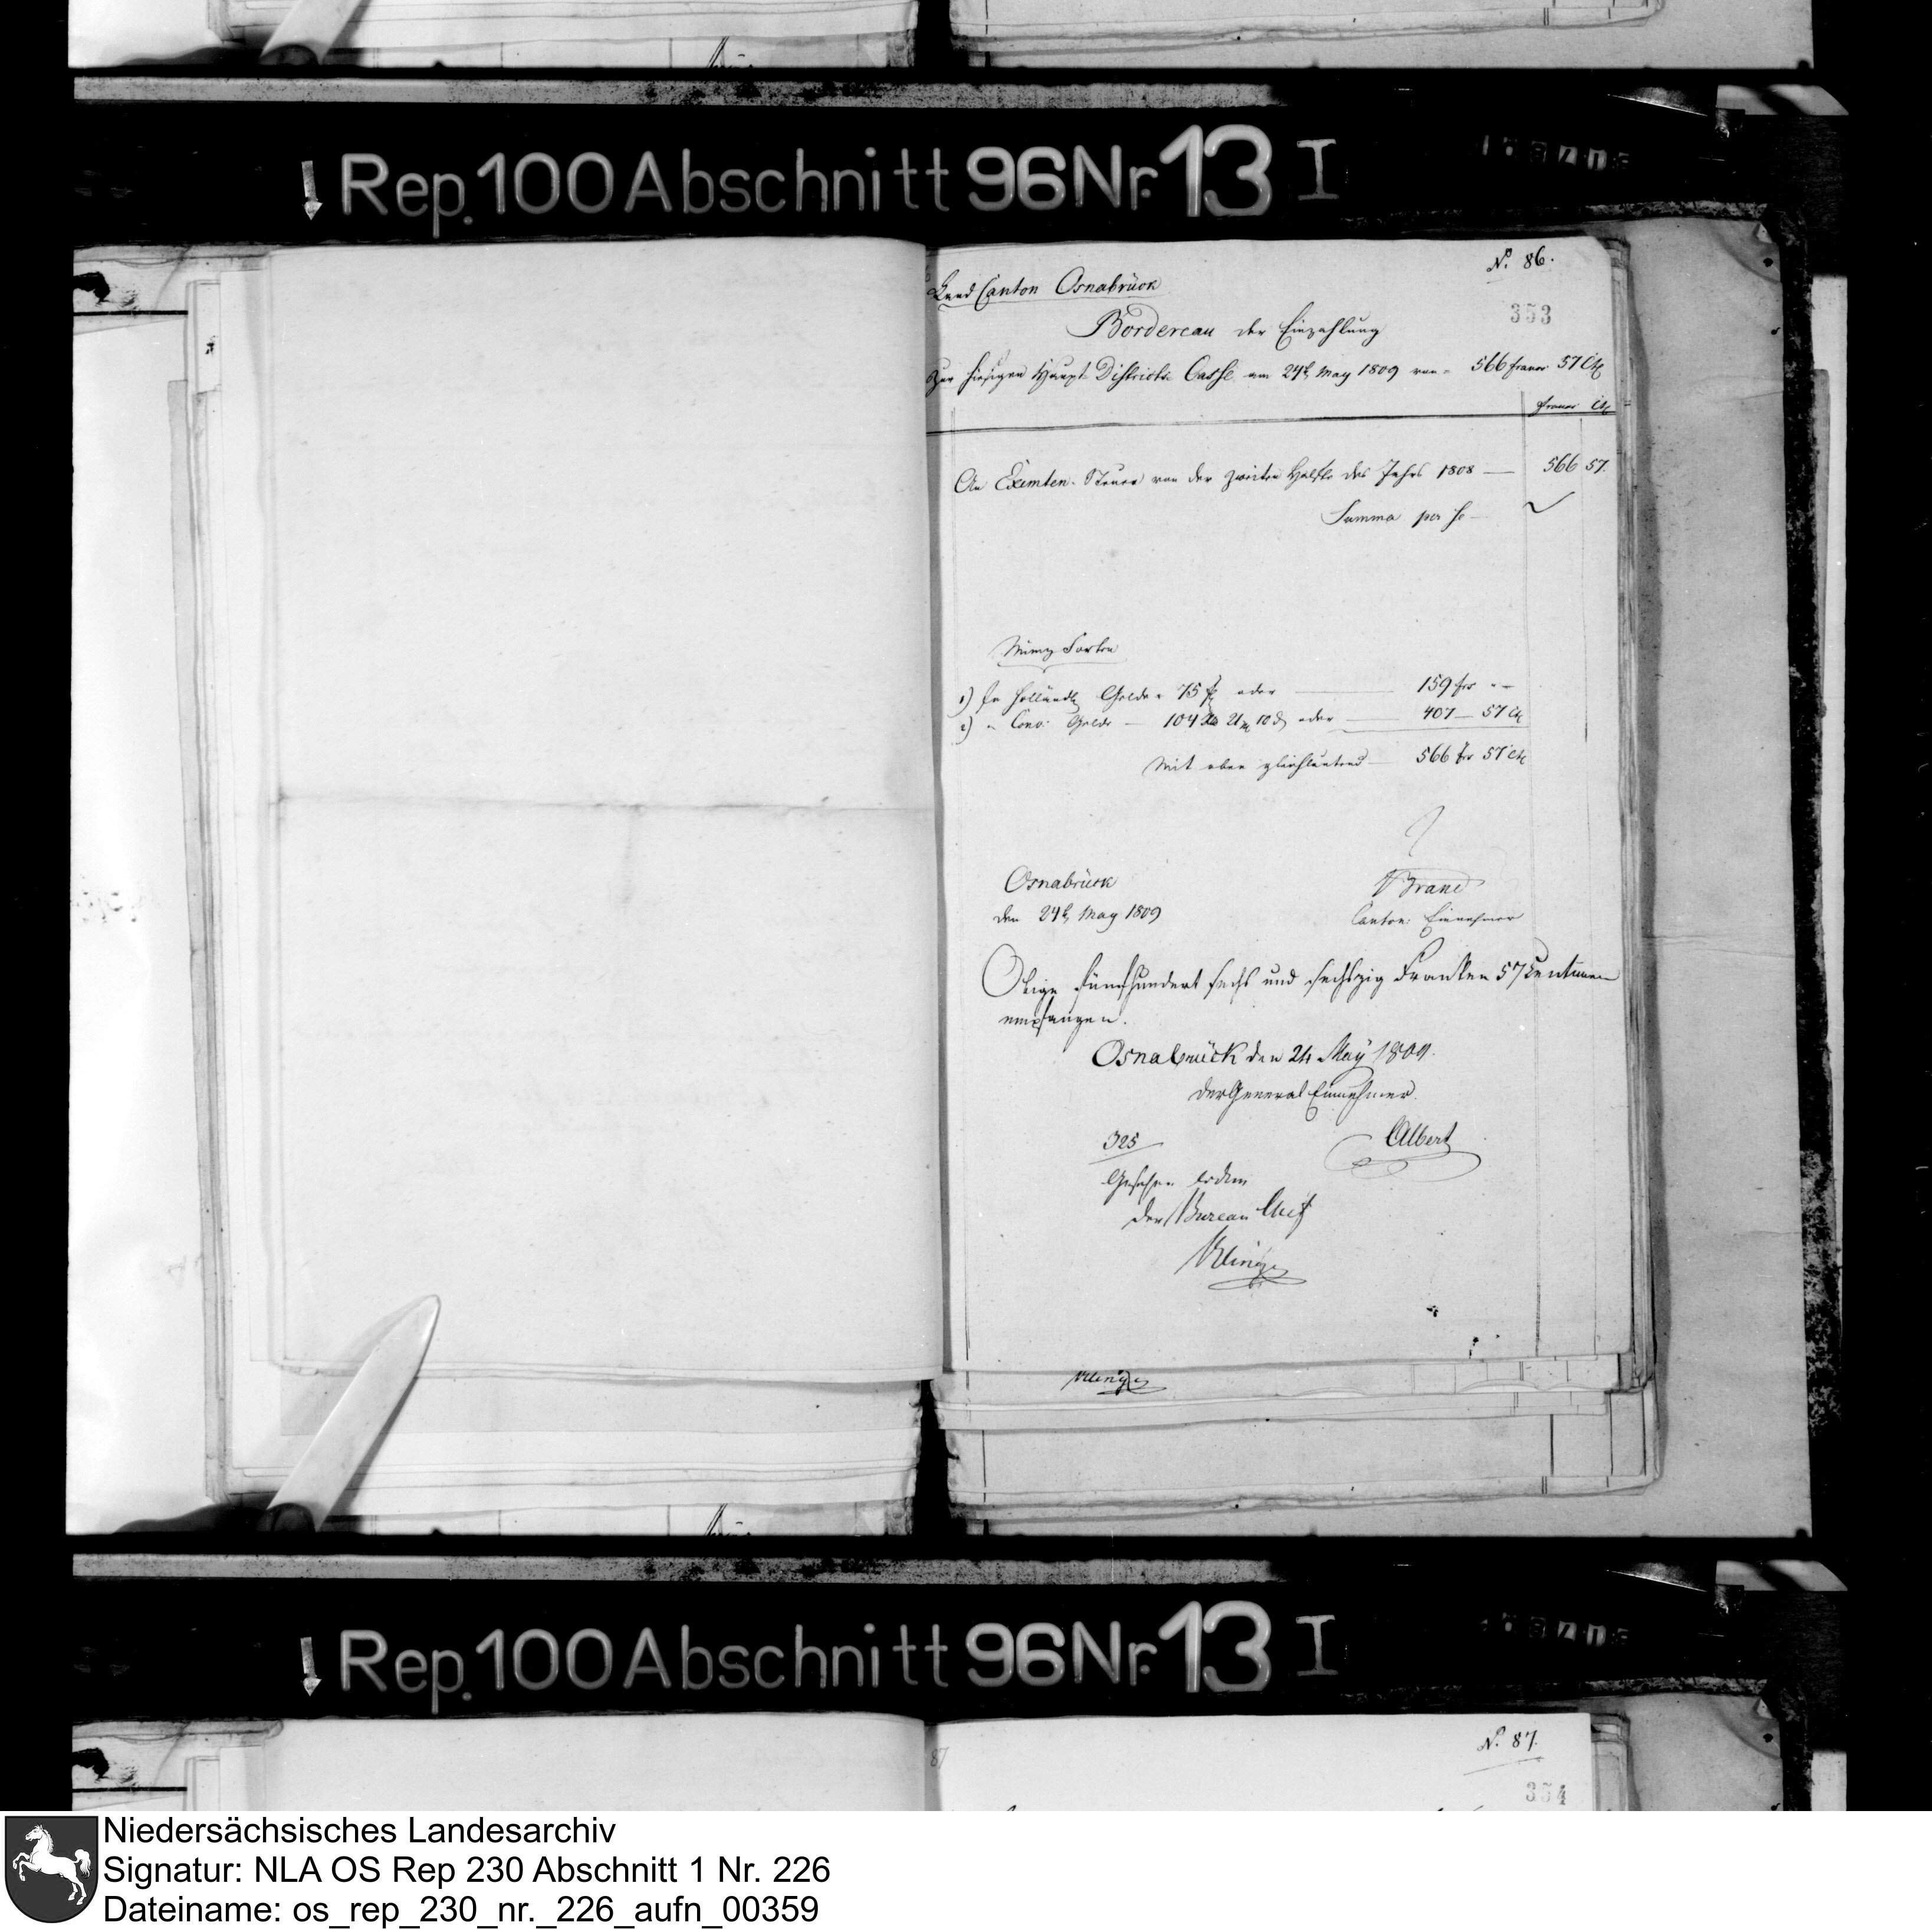 Rep. 100 Abschnitt 96 Nr. 13 I
No. 86.
353
Land Canton Osnabrück
Bordereau der Einzahlung
Zur hiesigen Haupt Districts Casse am 24t May 1809 von 566 franc 57 Ct
franc Ct
An Eximten-Steuer von der zweiten Hälfte des Jahrs 1808 — 566 57.
Summa per se —
Münz Sorten
1) In Holländ Gelde 75 f oder — 159 frs
2) " Conv: Gelde — 104 21 10 oder — 407 — 57 Ct
Mit oben gleichlautend — 566 fr 57 Ct
Osnabrück
den 24t May 1809
Brand
Canton: Einnehmer
Obige fünfhundert sechs und sechszig Franken 57 Centimen
empfangen.
Osnabrück den 24 May 1809.
der General Einnehmer.
Albert
325
Gesehen eodem
der Bureau Chef
Klinge
Klinge
Rep. 100 Abschnitt 96 Nr. 13 I
No. 87.
87
354
Niedersächsisches Landesarchiv
Signatur: NLA OS Rep 230 Abschnitt 1 Nr. 226
Dateiname: os_rep_230_nr._226_aufn_00359